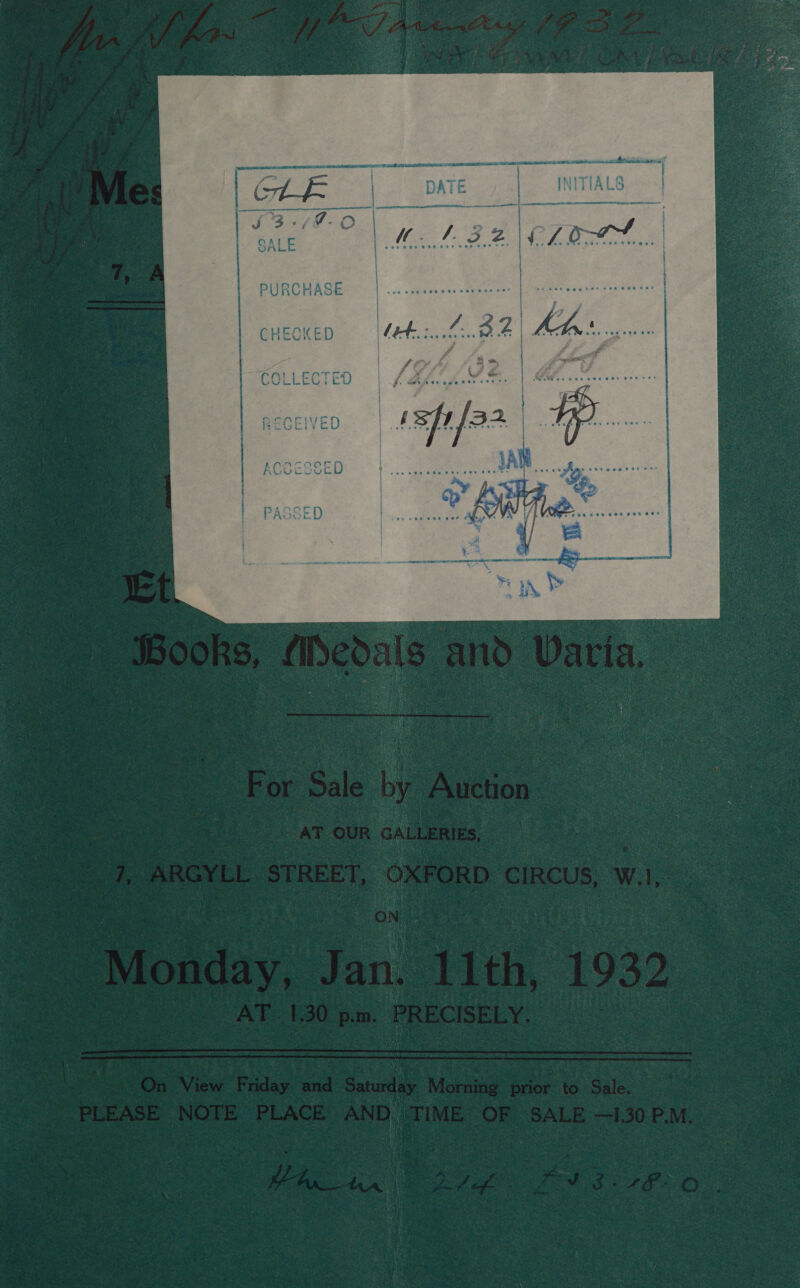 11th January 1932
Mes
7, A
GLE DATE INITIALS
53.18.0
SALE 11. 1. 32
PURCHASE
CHECKED 1. 32 Kh.
COLLECTED 18/1/32 HS
RECEIVED 18/1/32
ACCESSED
PASSED
21 JAN 1932
Et
Books, Medals and Varia.
For Sale by Auction
AT OUR GALLERIES,
7, ARGYLL STREET, OXFORD CIRCUS, W.1,
ON
Monday, Jan. 11th, 1932
AT 1.30 p.m. PRECISELY.
On View Friday and Saturday Morning prior to Sale.
PLEASE NOTE PLACE AND TIME OF SALE —1.30 P.M.
214. £53.18.0.